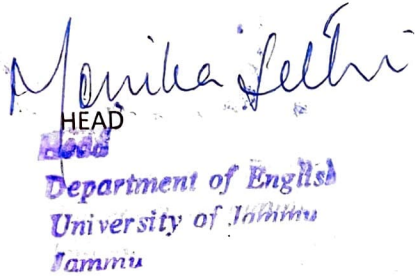 Monika Sethi
HEAD
Head
Department of English
University of Jammu
Jammu